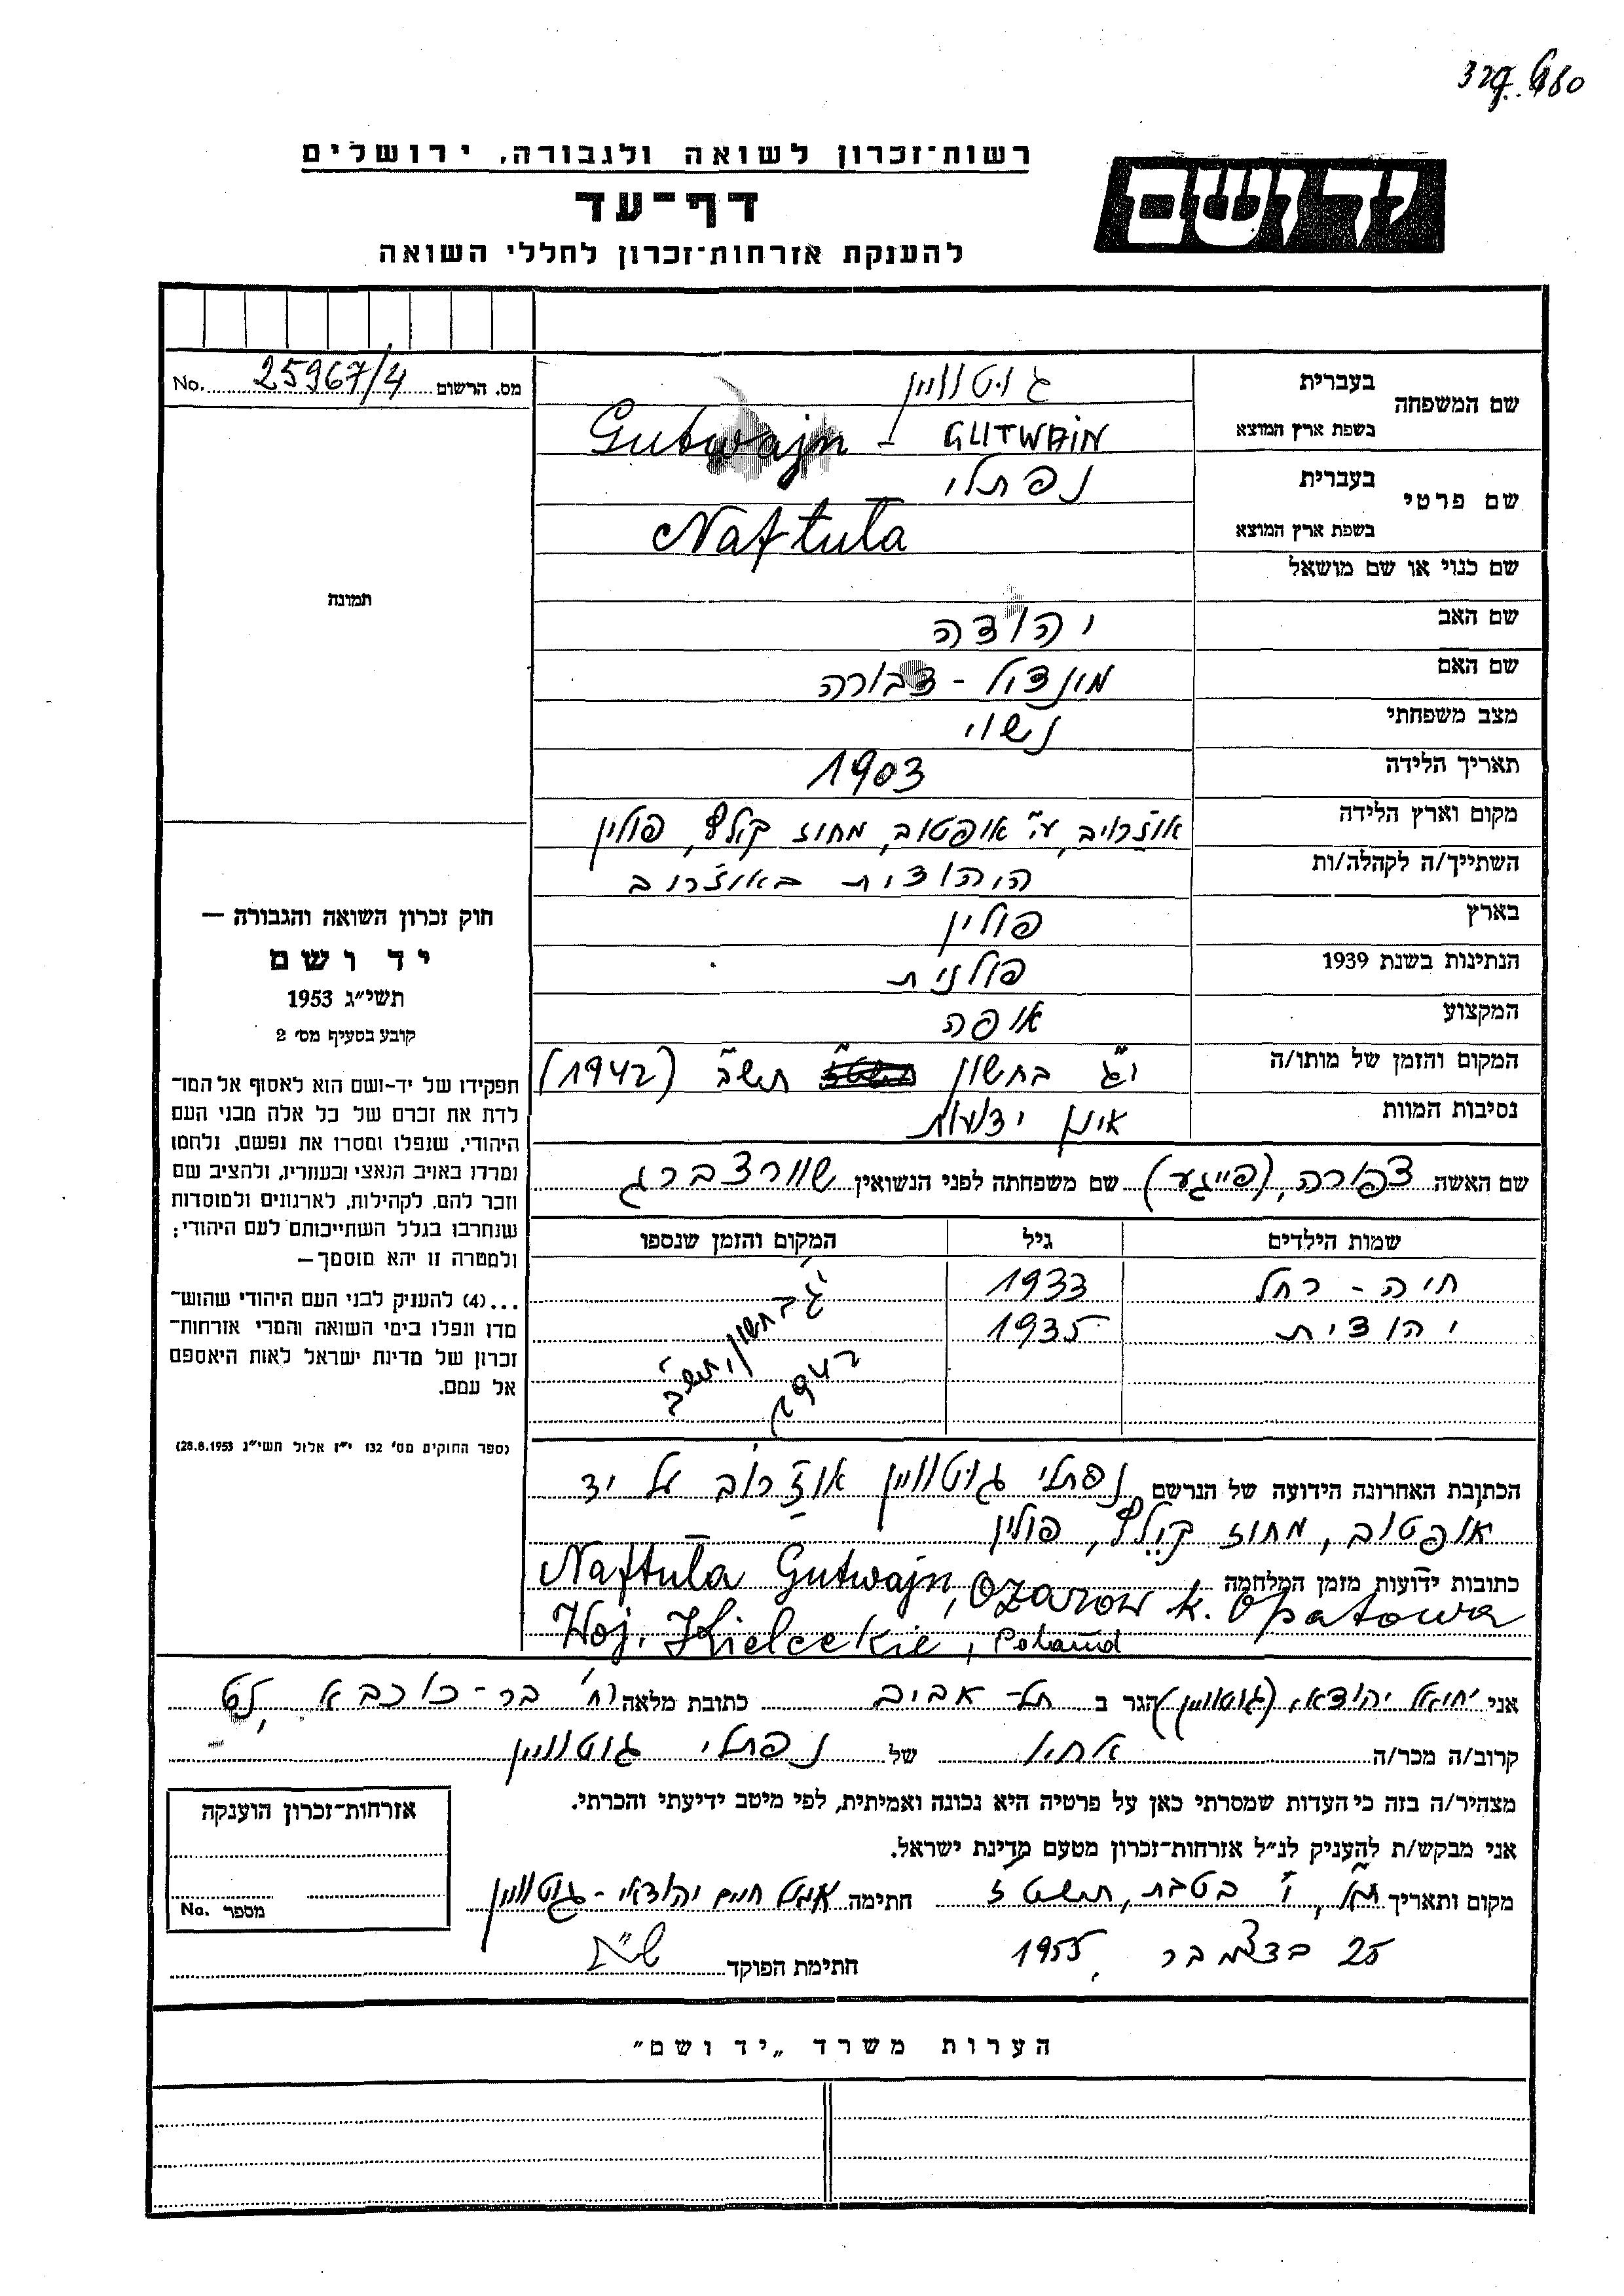 רשות־זכרון לשואה ולגבורה, ירושלים
יד ושם
דף־עד
להענקת אזרחות־זכרון לחללי השואה
מס. הרשום 25967/4 No.
שם המשפחה בעברית גוטוויין
בשפת ארץ המוצא GUTWAIN - Gutwajn
שם פרטי בעברית נפתלי
בשפת ארץ המוצא Naftula
שם כנוי או שם מושאל
שם האב יהודה
שם האם מונדזל - דבורה
מצב משפחתי נשוי
תאריך הלידה 1903
מקום וארץ הלידה ע"י אופטוב, מחוז קילץ, פולין
השתייך/ה לקהלה/ות היהודית באוז'רוב
בארץ פולין
הנתינות בשנת 1939 פולנית
המקצוע אופה
המקום והזמן של מותו/ה י"ג בחשון תש"ב (1942)
נסיבות המוות אינן ידועות
שם האשה צפורה, (פייגע) שם משפחתה לפני הנשואין שוורצברג
שמות הילדים גיל המקום והזמן שנספו
חיה - רחל 1933 י"ג בחשון, תש"ב
יהודית 1935 1942
הכתובת האחרונה הידועה של הנרשם נפתלי גוטוויין אוז'רוב על יד
אופטוב, מחוז קילץ, פולין
כתובות ידועות מזמן המלחמה Naftula Gutwajn, Ozarow k. Opatowa
Woj. Kieleckie, Poland
תמונה
חוק זכרון השואה והגבורה —
יד ושם
תשי"ג 1953
קובע בסעיף מס' 2
תפקידו של יד-ושם הוא לאסוף אל המו־
לדת את זכרם של כל אלה מבני העם
היהודי, שנפלו ומסרו את נפשם, נלחמו
ומרדו באויב הנאצי ובעוזריו, ולהציב שם
וזכר להם, לקהילות, לארגונים ולמוסדות
שנחרבו בגלל השתייכותם לעם היהודי;
ולמטרה זו יהא מוסמך—
...(4) להעניק לבני העם היהודי שהוש־
מדו ונפלו בימי השואה והמרי אזרחות־
זכרון של מדינת ישראל לאות היאספם
אל עמם.
(ספר החוקים מס' 132 י"ז אלול תשי"ג 28.8.1953)
אני יחיאל יהודאי, (גוטוויין) הגר ב תל-אביב כתובת מלאה רח' בר-כוכבא
קרוב/ה מכר/ה אחיו של נפתלי גוטוויין
מצהיר/ה בזה כי העדות שמסרתי כאן על פרטיה היא נכונה ואמיתית, לפי מיטב ידיעתי והכרתי.
אני מבקש/ת להעניק לנ"ל אזרחות־זכרון מטעם מדינת ישראל.
מקום ותאריך י' בטבת, חתימה יהודאי - גוטוויין
25 בדצמבר, 1955
חתימת הפוקד
אזרחות־זכרון הוענקה
מספר No.
הערות משרד „יד ושם"